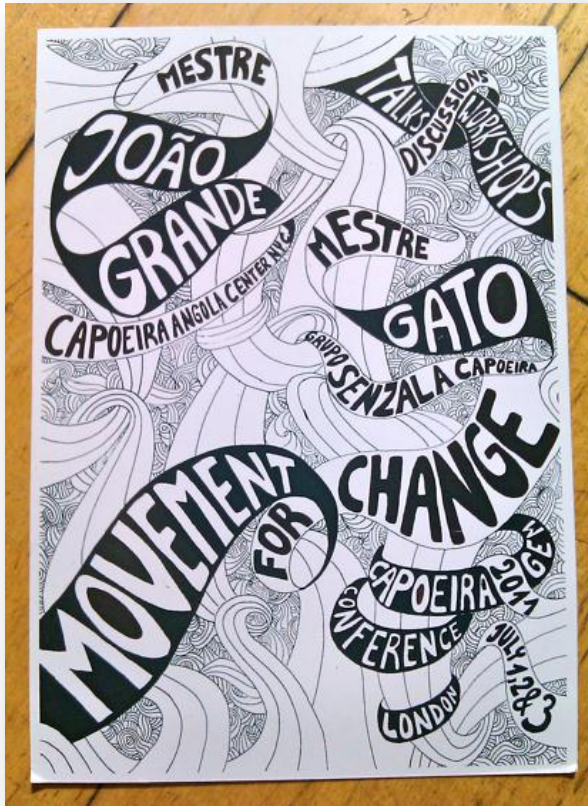 MESTRE
JOÃO
GRANDE
CAPOEIRA ANGOLA CENTER NYC
TALKS
DISCUSSIONS
WORKSHOPS
MESTRE
GATO
GRUPO SENZALA CAPOEIRA
MOVEMENT
FOR
CHANGE
CAPOEIRA
CONFERENCE
LONDON
2011
JULY 1,2&3